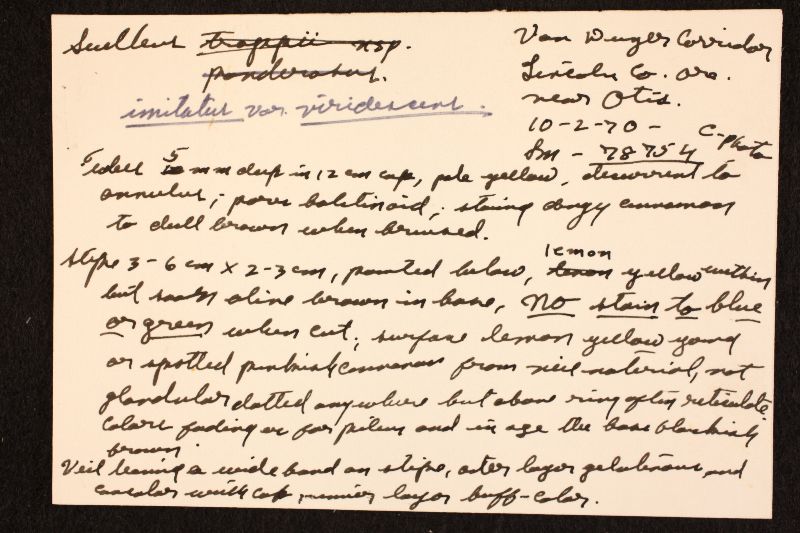 Suillus trappii nsp.
ponderosus.
imitatus var. viridescens.
Van Duzer Corridor
Lincoln Co. Ore.
near Otis.
10-2-70 - C-photo
Sm - 78754
Tubes 5 mm deep in 12 cm cap, pale yellow, decurrent to
annulus; pores boletinoid; staing dingy cinnamon
to dull brown when bruised.
Stipe 3-6 cm x 2-3 cm, pointed below, lemon yellow within
but soon olive brown in base, NO stain to blue
or green when cut; surface lemon yellow
or spotted pinkish cinnamon from veil material, not
glandular dotted anywhere but above ring often reticulate.
Colors fading as for pileus and in age the base blackish
brown.
Veil leaving a wide band on stipe, outer layer gelatinous and
concolor with cap, inner layer buff-color.